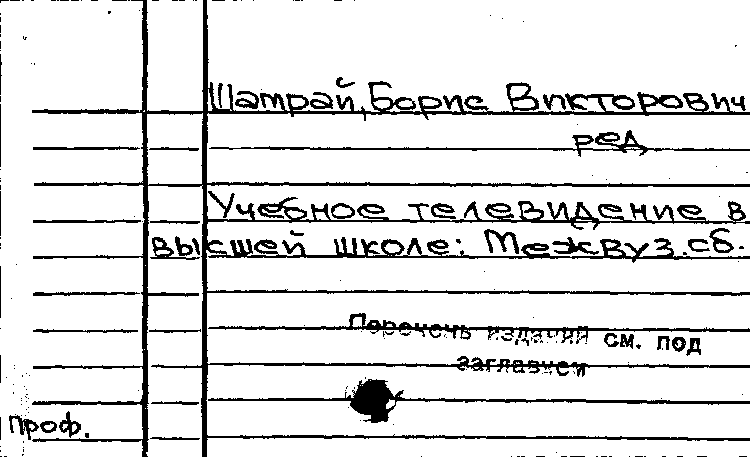 Шатрай, Борис Викторович
ред
Учебное телевидение в
высшей школе: Межвуз. сб.
Перечень изданий см. под
заглавием
проф.